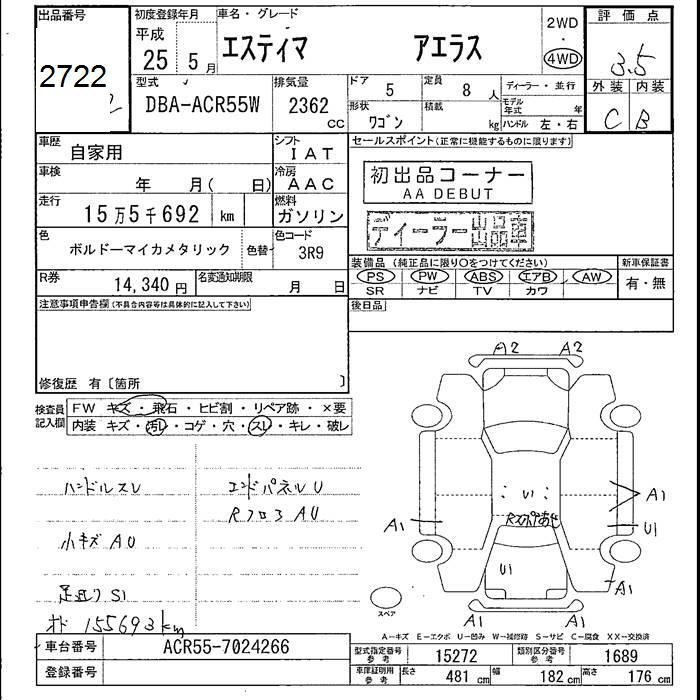 出品番号
2722
初度登録年月
平成
25年5月
車名・グレード
エスティマ アエラス
2WD
・
4WD
評価点
3.5
外装 内装
C B
型式
DBA-ACR55W
排気量
2362
CC
ドア
5
定員
8 人
形状
ワゴン
積載
kg
ディーラー・並行
モデル年式 年
ハンドル 左・右
車歴
自家用
シフト
IAT
車検
年 月( 日)
冷房
AAC
走行
15万5千692 km
燃料
ガソリン
色
ボルドーマイカメタリック
色替
色コード
3R9
R券
14,340 円
名変通知期限
月 日
セールスポイント(正常に機能するものに限ります)
初出品コーナー
AA DEBUT
ディーラー出品車
装備品 (純正品に限り○をつけてください)
新車保証書
PS PW ABS エアB AW
SR ナビ TV カワ
有・無
後日品
注意事項申告欄(不具合内容等は具体的に記入して下さい)
修復歴 有〔箇所 〕
検査員
記入欄
FW キズ・飛石・ヒビ割・リペア跡・×要
内装 キズ・汚レ・コゲ・穴・スレ・キレ・破レ
ハンドルスレ
エンドパネルU
Rフロア AU
小キズ AU
足廻り S1
オド 155693km
A2 A2
U1
A1
A1
U1
U1
A1
A1 A1
スペア
A-キズ E-エクボ U-凹み W-補修跡 S-サビ C-腐食 XX-交換済
車台番号
ACR55-7024266
登録番号
型式指定番号
参考
15272
類別区分番号
参考
1689
車庫証明用
参考
長さ 481 cm 幅 182 cm 高さ 176 cm